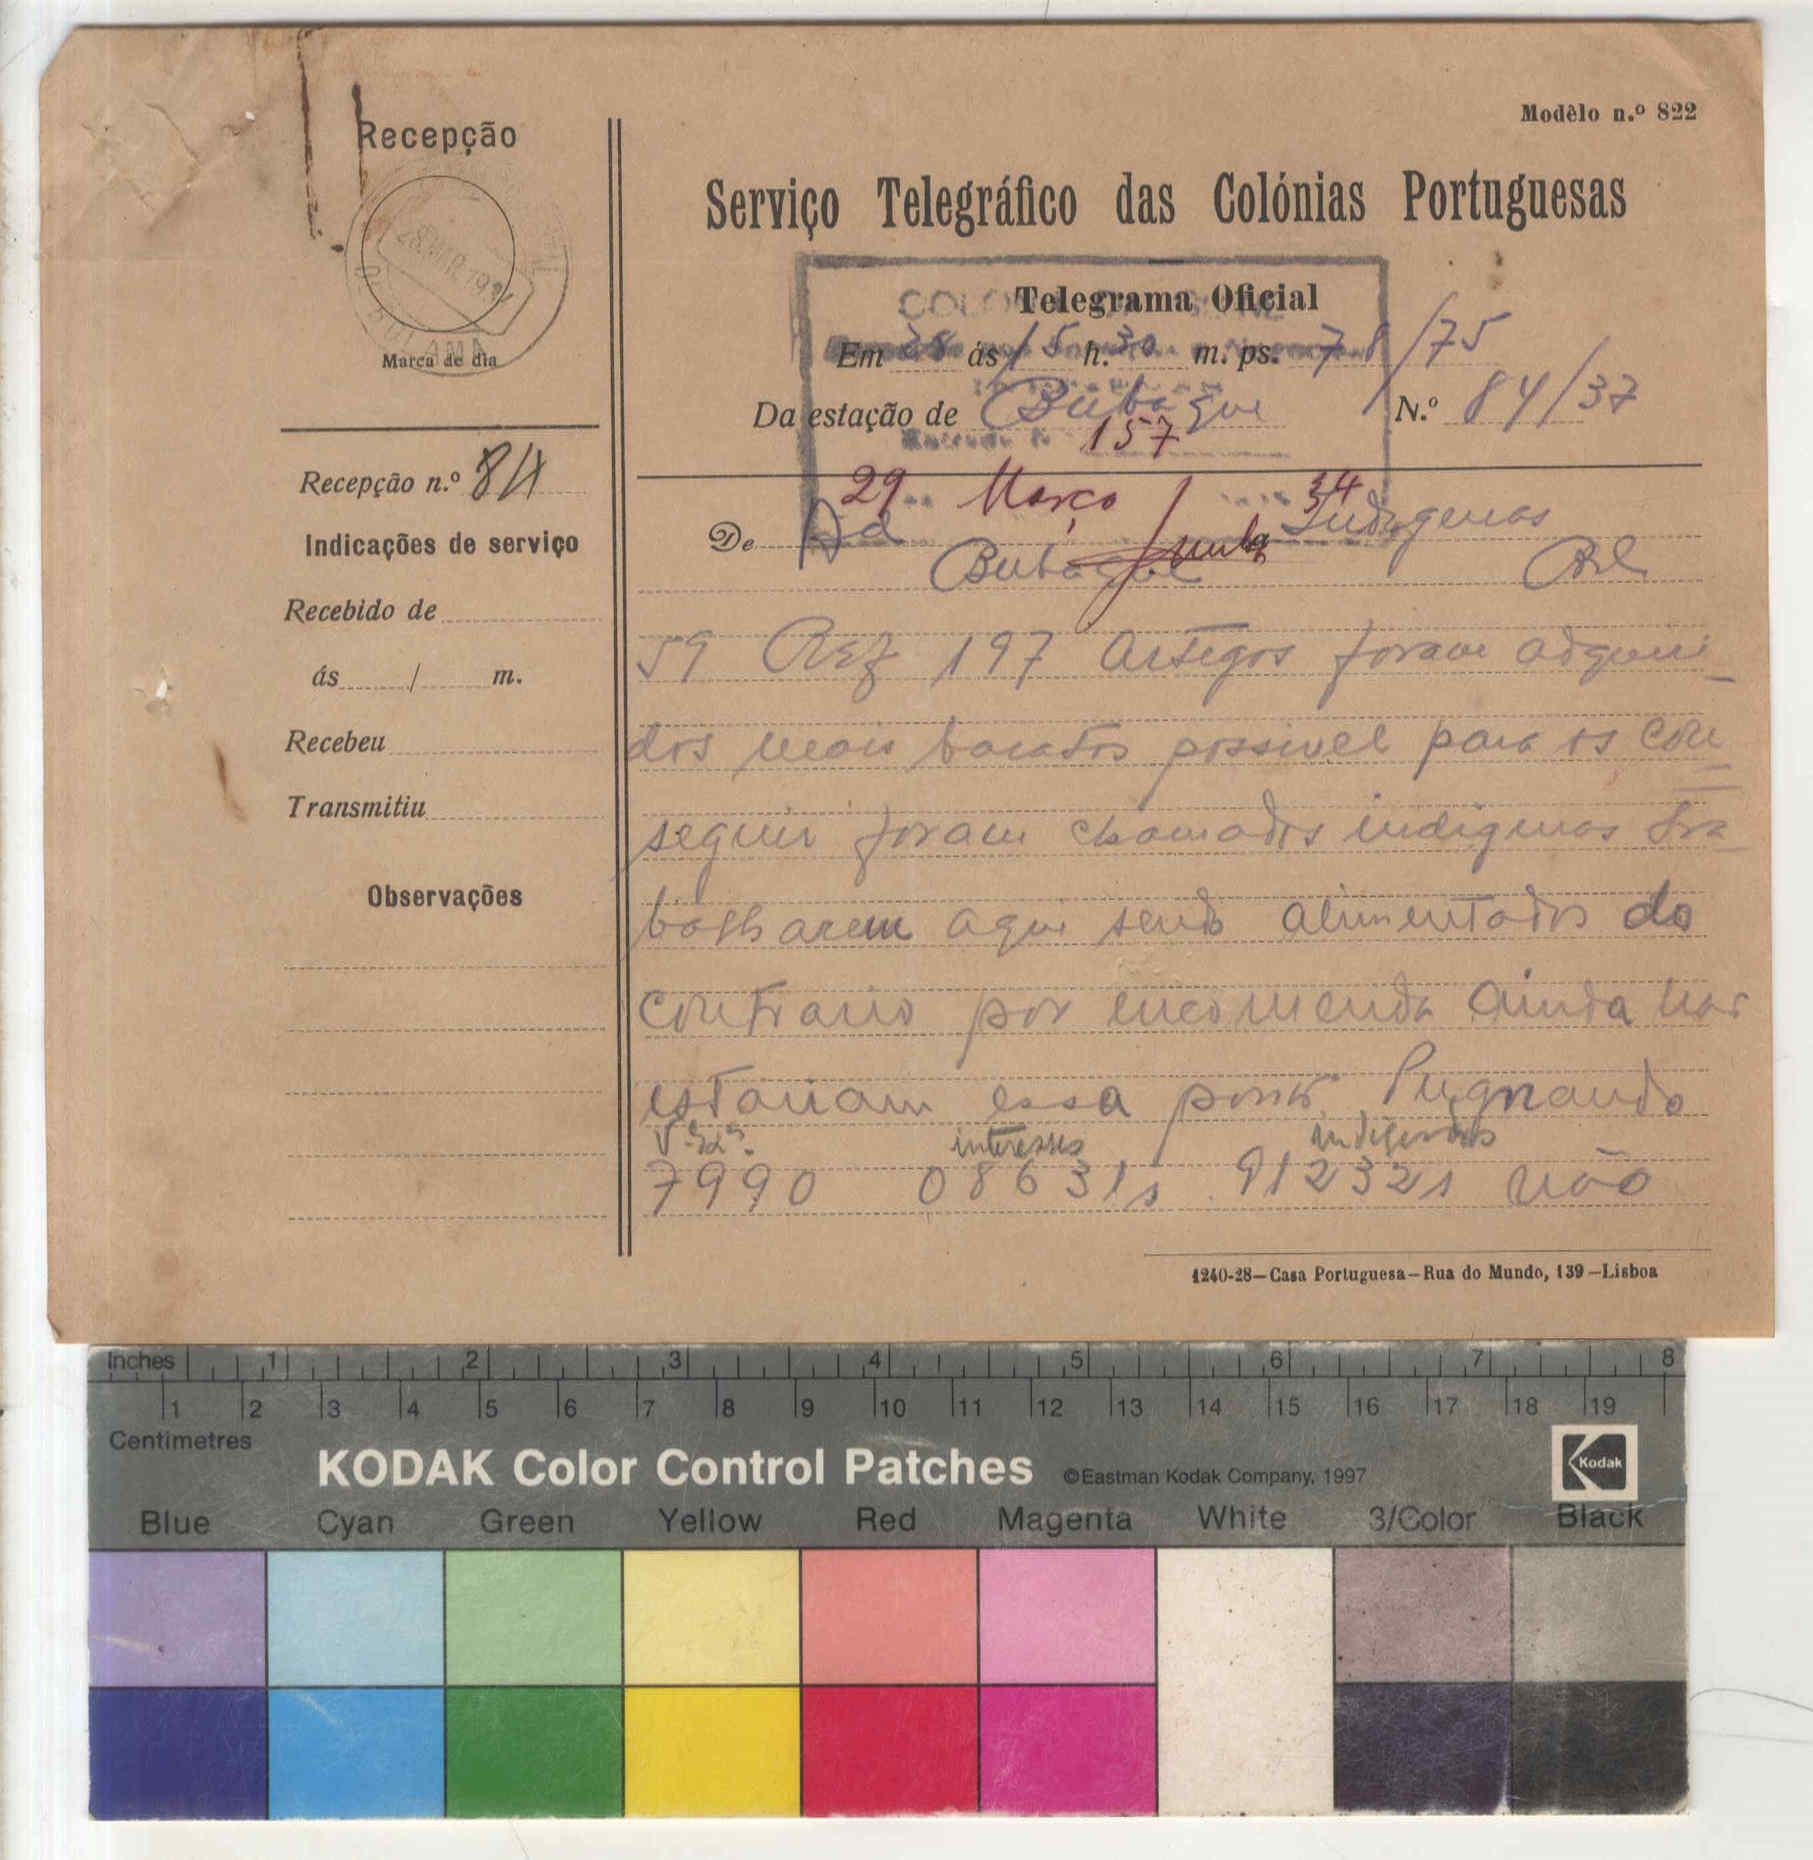 Modêlo n.º 822
Recepção
28.MAR.19
BOLAMA
Marca de dia
Serviço Telegráfico das Colónias Portuguesas
Telegrama Oficial
Em 28 ás 15 h. 30 m. ps. 78/75
Da estação de Bubaque N.º 84/37
157
29 Março 34
De Ad Indigenas
Bubaque Bl
59 Ref 197 Artigos foram adquiri
dos mais baratos possivel para os con
seguir foram chamados indigenas tra
balharem aqui sendo alimentados do
contrario por encomenda ainda nao
estariam essa ponto Pugnando
V. Exª. interesses indigenas
7990 08631s 912321 não
Recepção n.º 84
Indicações de serviço
Recebido de
ás / m.
Recebeu
Transmitiu
Observações
1240-28—Casa Portuguesa—Rua do Mundo, 139—Lisboa
Inches 1 2 3 4 5 6 7 8
1 2 3 4 5 6 7 8 9 10 11 12 13 14 15 16 17 18 19
Centimetres
KODAK Color Control Patches ©Eastman Kodak Company, 1997 Kodak
Blue Cyan Green Yellow Red Magenta White 3/Color Black